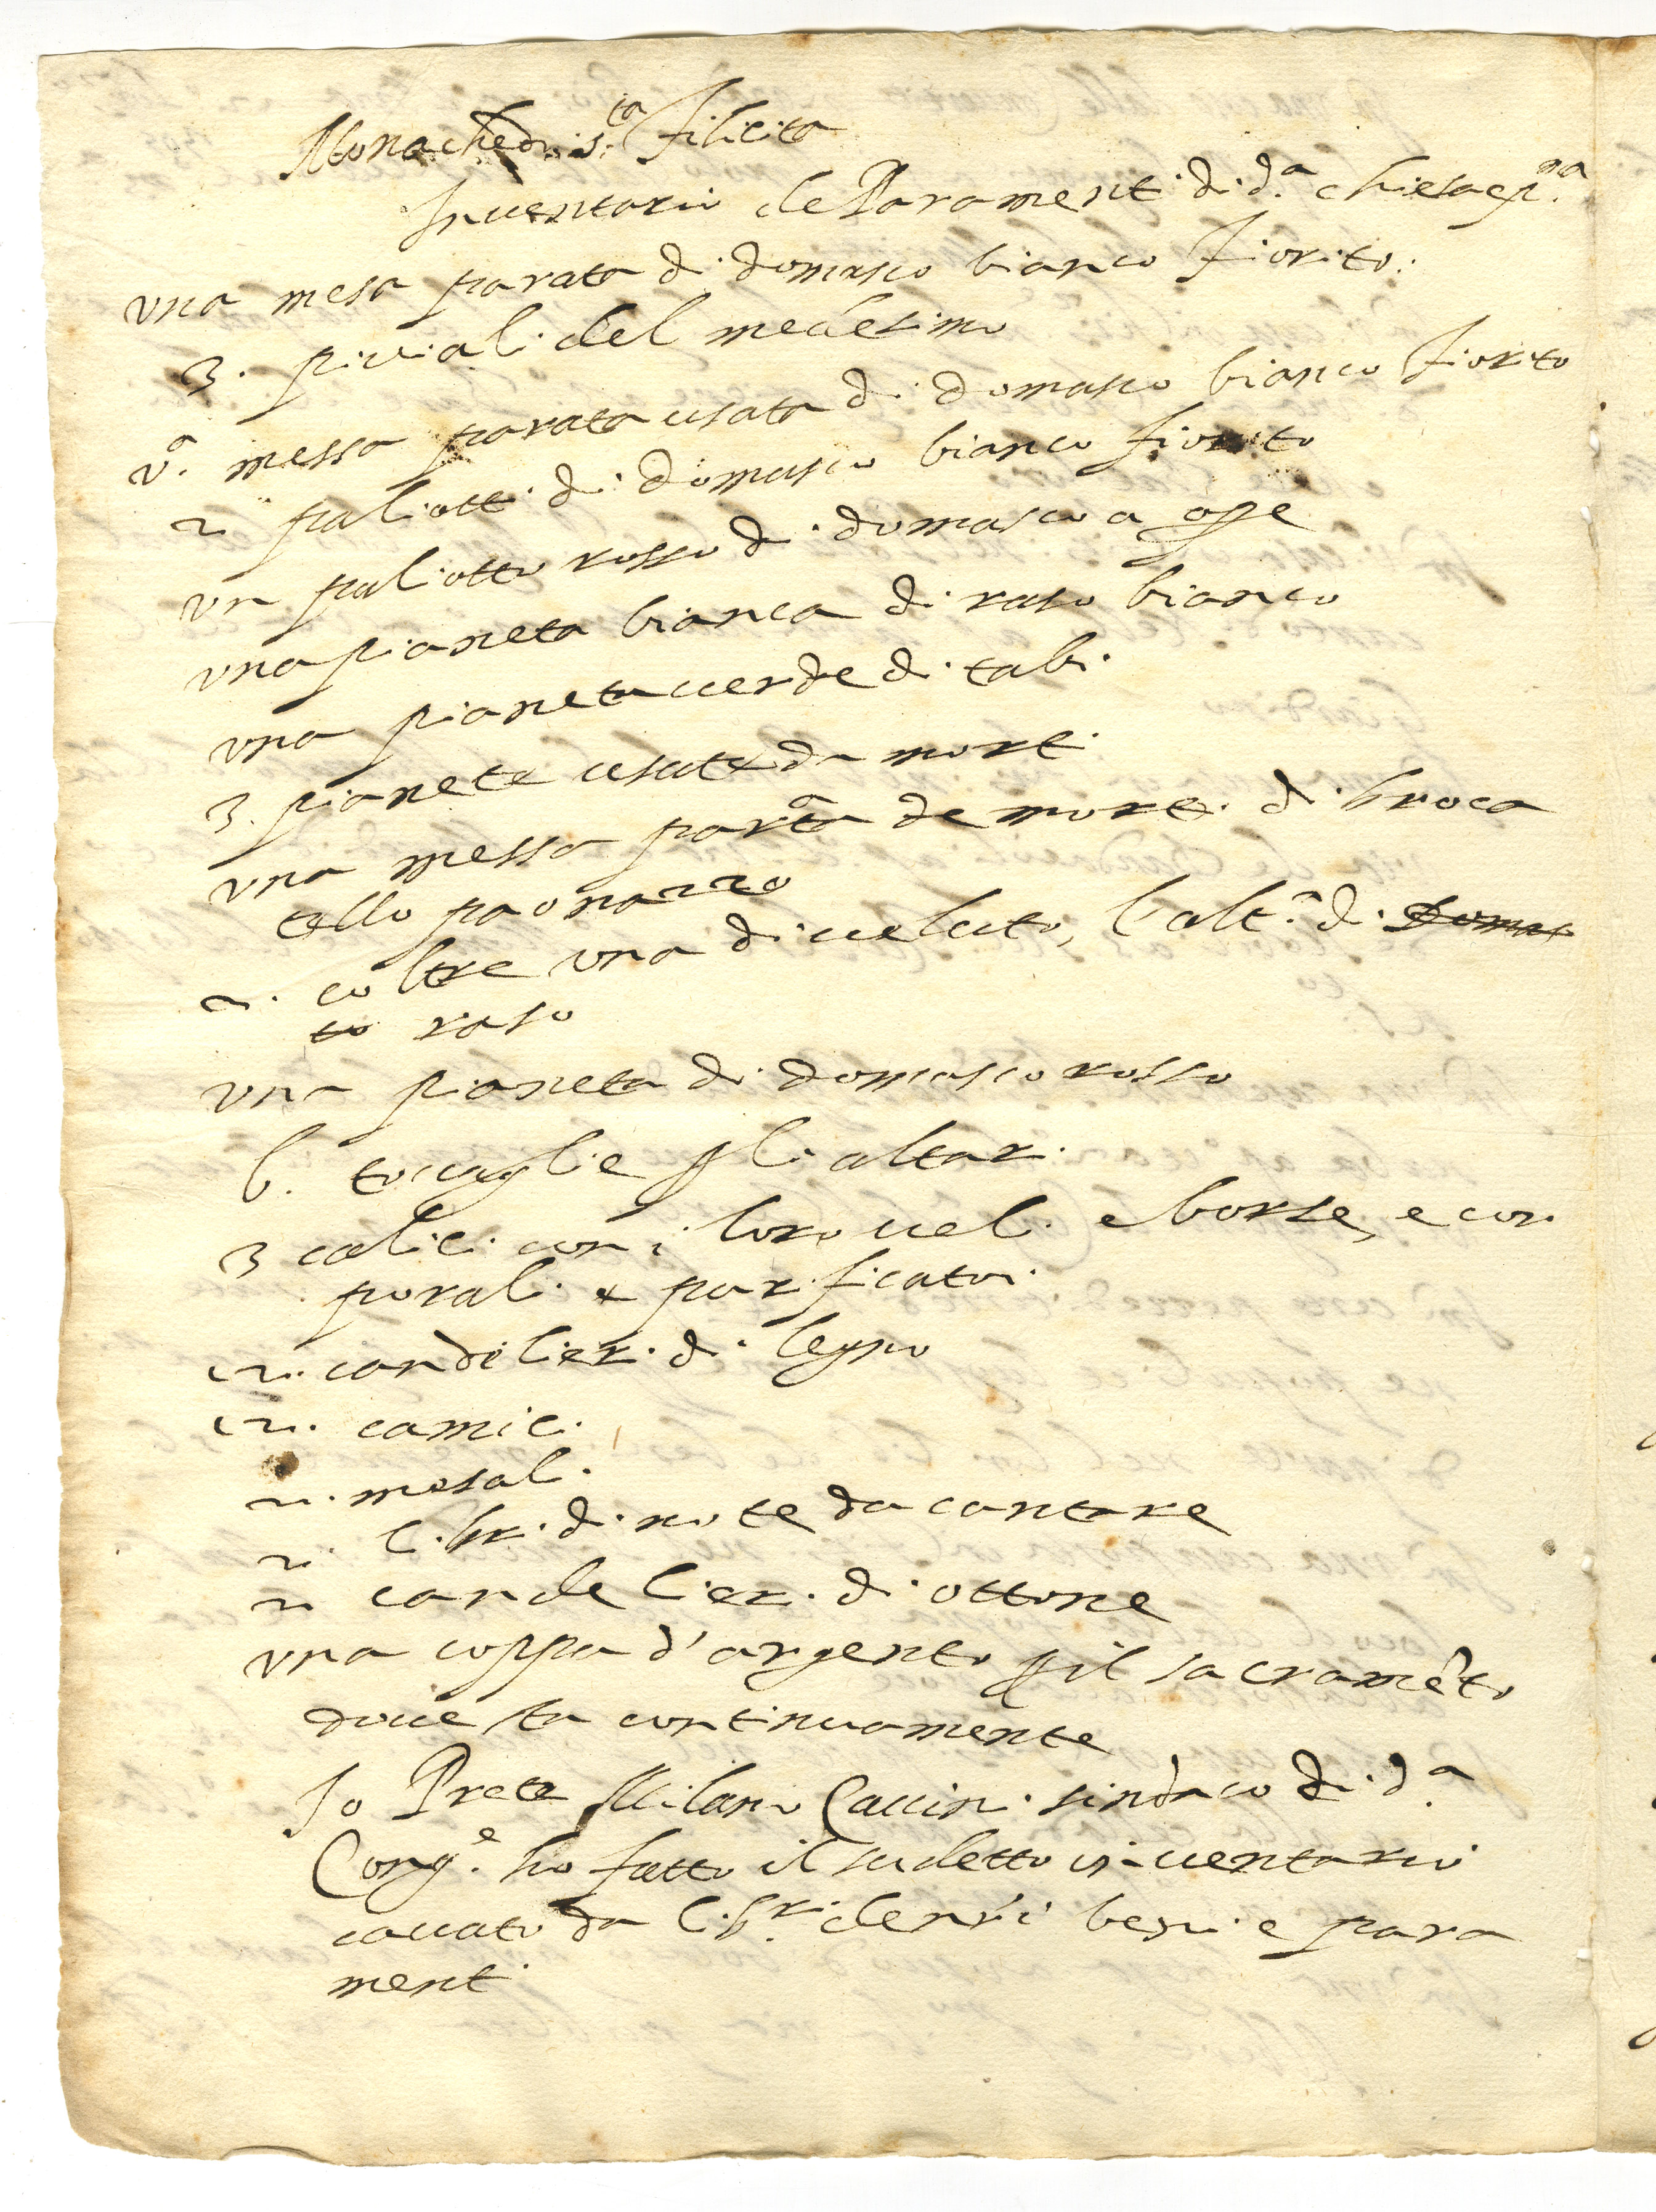 Monache di S.ta Filicita
Inventario de Paramenti di d.a chiesa e p.ma
una mesa parata di domasco bianco fiorito.
3. piviali del medesimo
v.a messa parata usata di domasco bianco fiorito
2 paliotti di domasco bianco fiorito
un paliotto rosso di domasco a ope
una pianeta bianca di raso bianco
una pianeta verde di tabi
3. pianete usate da morti
una messa par.ta de morti di broca
tello paonazzo
2. coltre una di veluto, l'alt.a di domas
co raso
una pianeta di domasco rosso
6. tovaglie p li altari
3 calici con i loro veli e borse, e cor
porali e purificatoi
12. candelieri di legno
12. camici
2. mesali
2. libri di note da cantare
2 candelieri di ottone
una coppa d'argento p il sacramēto
dove sta continuamente
Io Prete Milanio Caccini sindaco di d.a
Cong.e ho fatto il sudetto inventario
cavato da libri de beni e para
menti